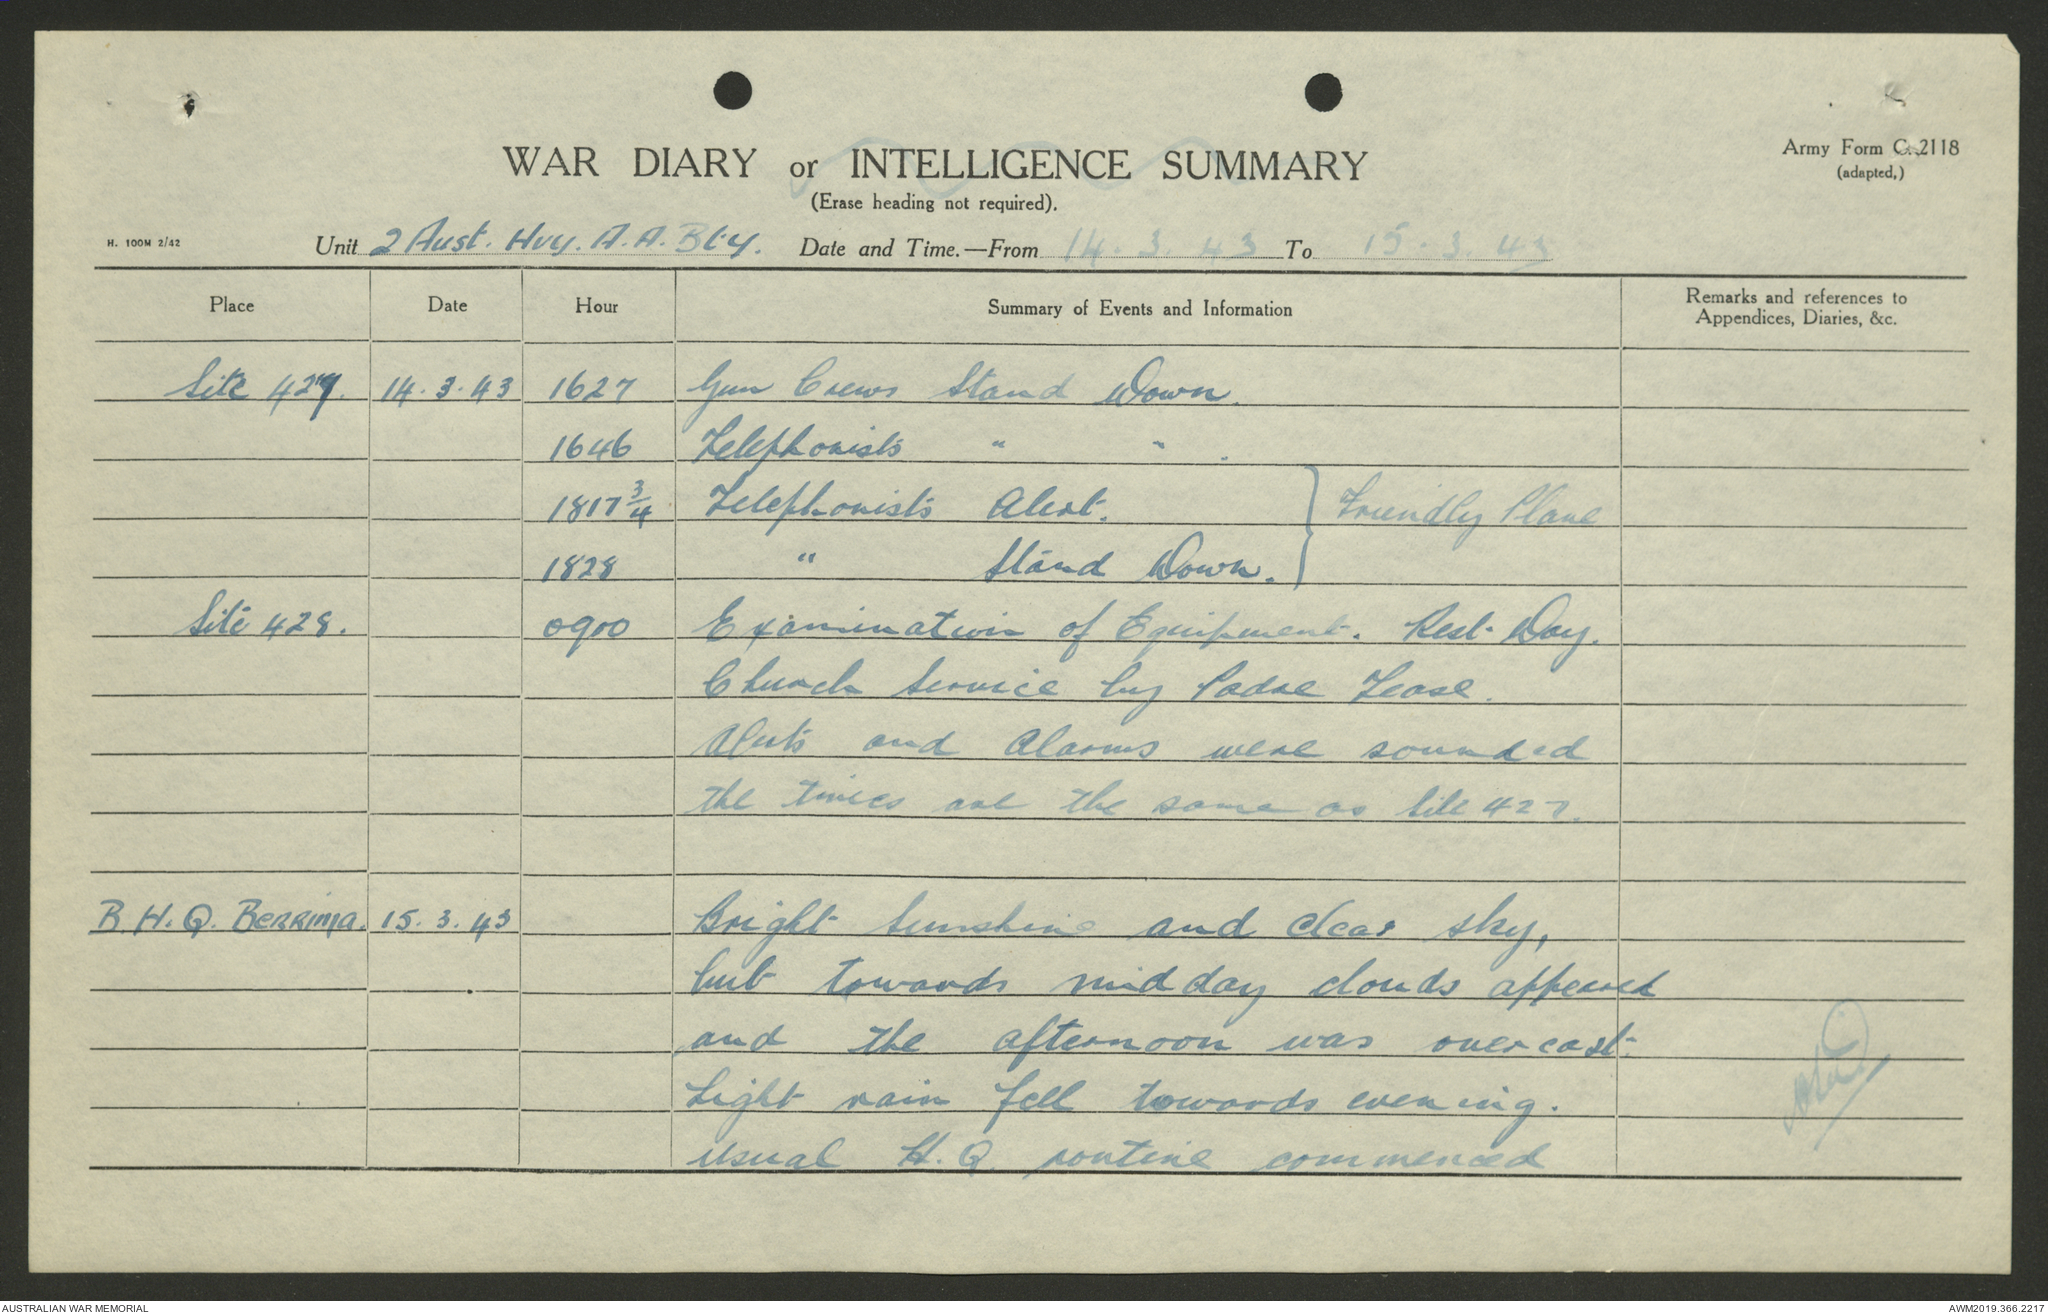 WAR DIARY or INTELLIGENCE SUMMARY
(Erase heading not required).
Army Form C.2118
(adapted,)
H. 100M 2/42
Unit 2 Aust. Hvy. A.A. Bty. Date and Time.—From 14.3.43 To 15.3.43
Place Date Hour Summary of Events and Information Remarks and references to
Appendices, Diaries, &c.
Site 427. 14.3.43 1627 Gun Crews Stand Down.
1646 Telephonists " " .
1817 3/4 Telephonists Alert. } Friendly Plane
1828 " Stand Down.
Site 428. 0900 Examination of Equipment. Rest Day.
Church Service by Padre Tease.
Alerts and Alarms were sounded
the times are the same as Site 427.
B.H.Q. Berrima. 15.3.43 Bright Sunshine and clear sky,
but towards midday clouds appeared
and the afternoon was overcast.
Light rain fell towards evening.
Usual H.Q. routine commenced
AUSTRALIAN WAR MEMORIAL
AWM2019.366.2217